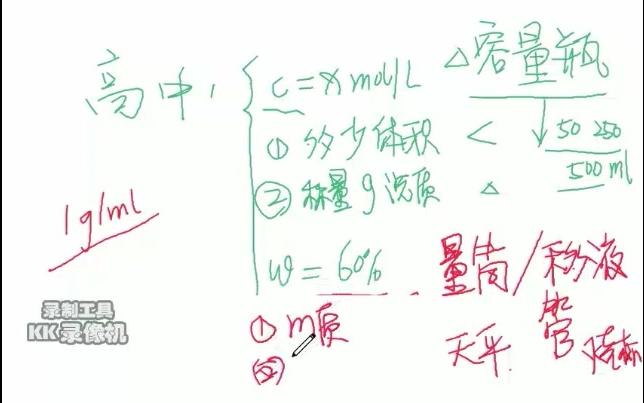 高中,
c = x mol/L
△容量瓶
① 多少体积 <
50 250
500 ml
② 称量 g 溶质 △
1g/ml
w = 60%
量筒/移液管
① m质
天平. 烧杯
录制工具
KK录像机